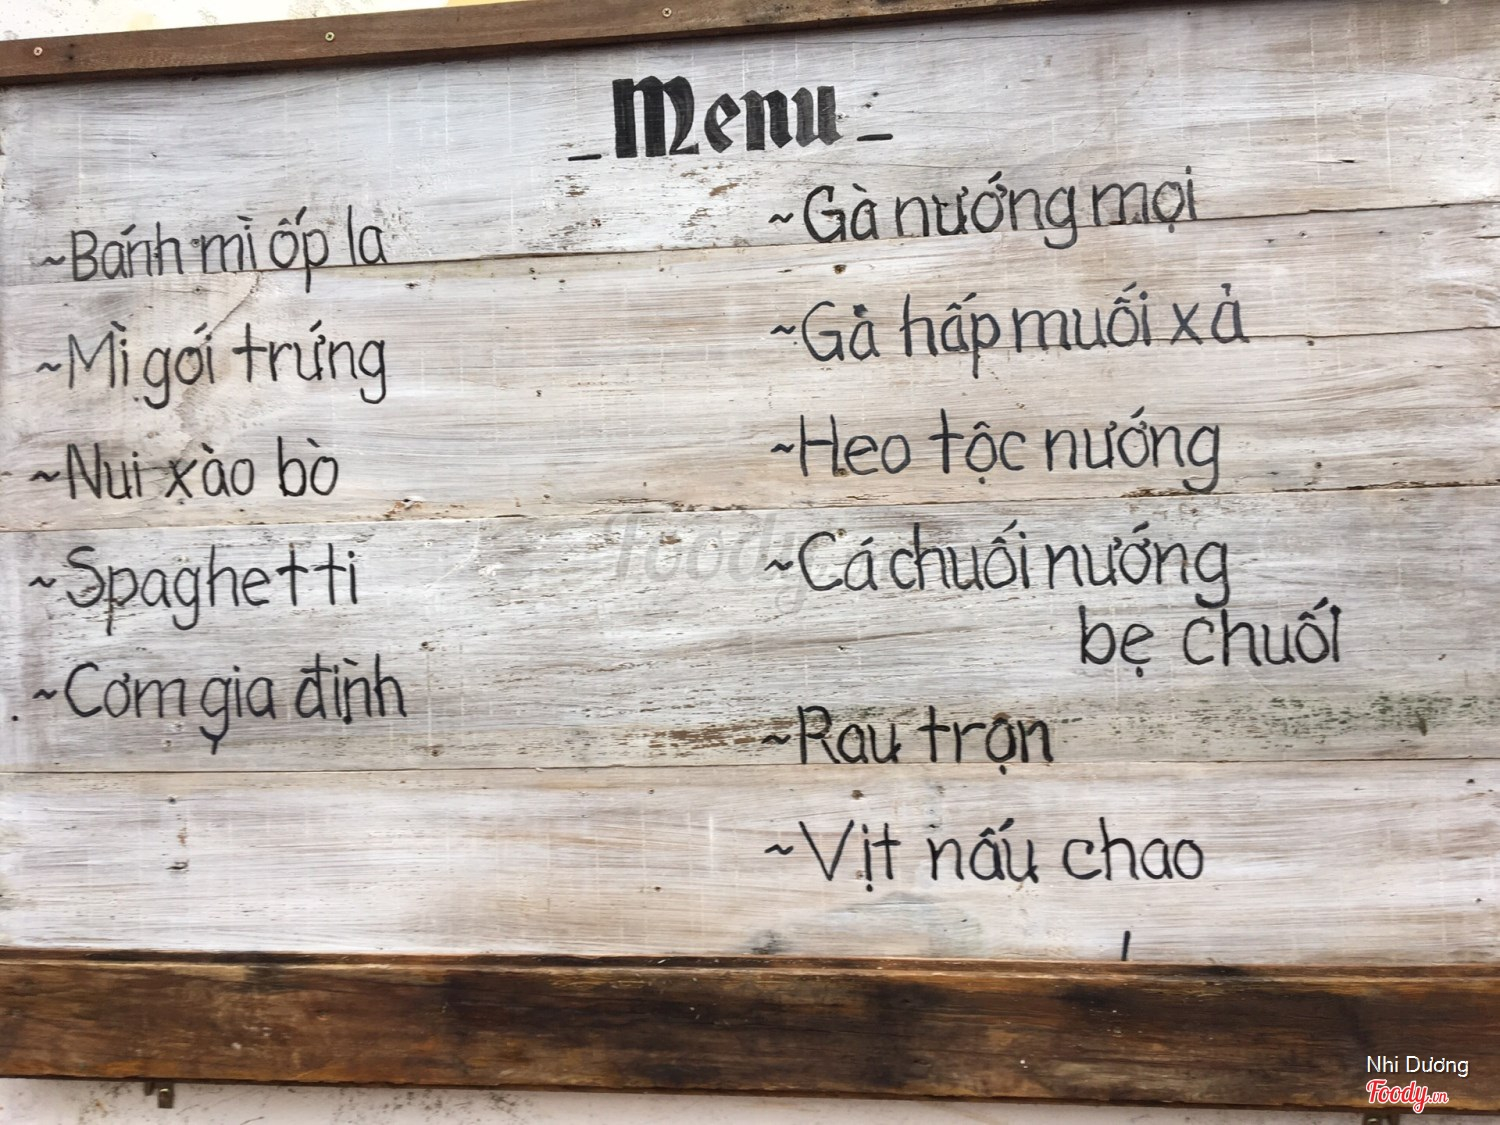 _Menu_
~Bánh mì ốp la
~Mì gói trứng
~Nui xào bò
~Spaghetti
~Cơm gia đình
~Gà nướng mọi
~Gà hấp muối xả
~Heo tộc nướng
~Cá chuối nướng
bẹ chuối
~Rau trộn
~Vịt nấu chao
Foody
Nhi Dương
Foody.vn